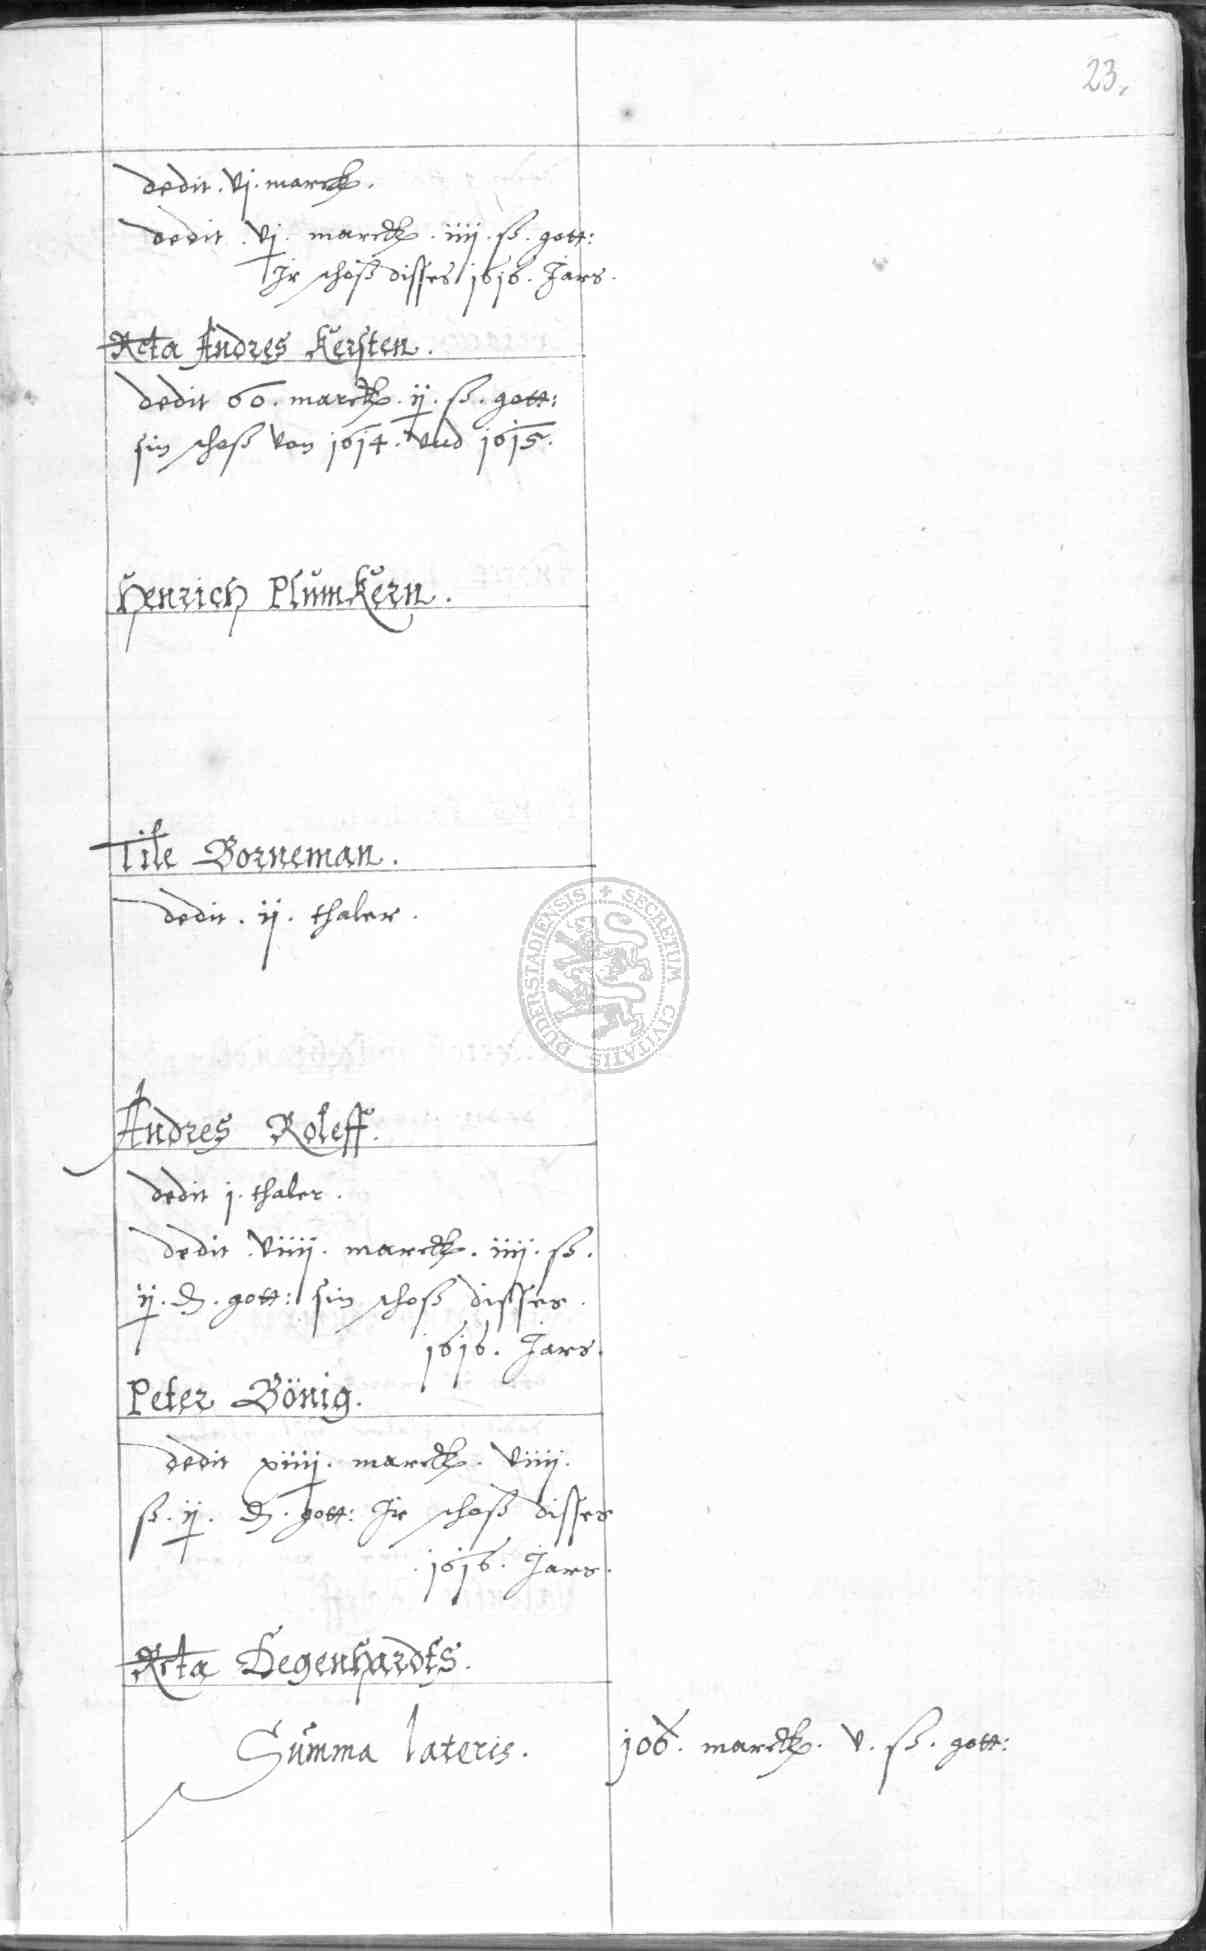 23.
dedit . vj . marck .
dedit . vj . marck . iiij . ß . gott :
Jr schoß disses 1616 . Jars .
Rcta Andres Kersten .
dedit 60 . marck . ij . ß . gott :
sin schoß von 1614 . vnd 1615 .
Henrich Plümkern .
Tile Borneman .
dedit . ij . thaler .
DUDERSTADIENSIS + SECRETUM CIVITATIS
Andres Roleff .
dedit j . thaler .
dedit . viiij . marck . iiij . ß .
ij . d . gott : sin schoß disses .
1616 . Jars .
Peter Bönig .
dedit xiiij . marck . viiij .
ß . ij . d . gott : Jr schoß disses
1616 . Jars .
Rcta Degenhardts .
Summa lateris . 106 . marck . v . ß . gott :